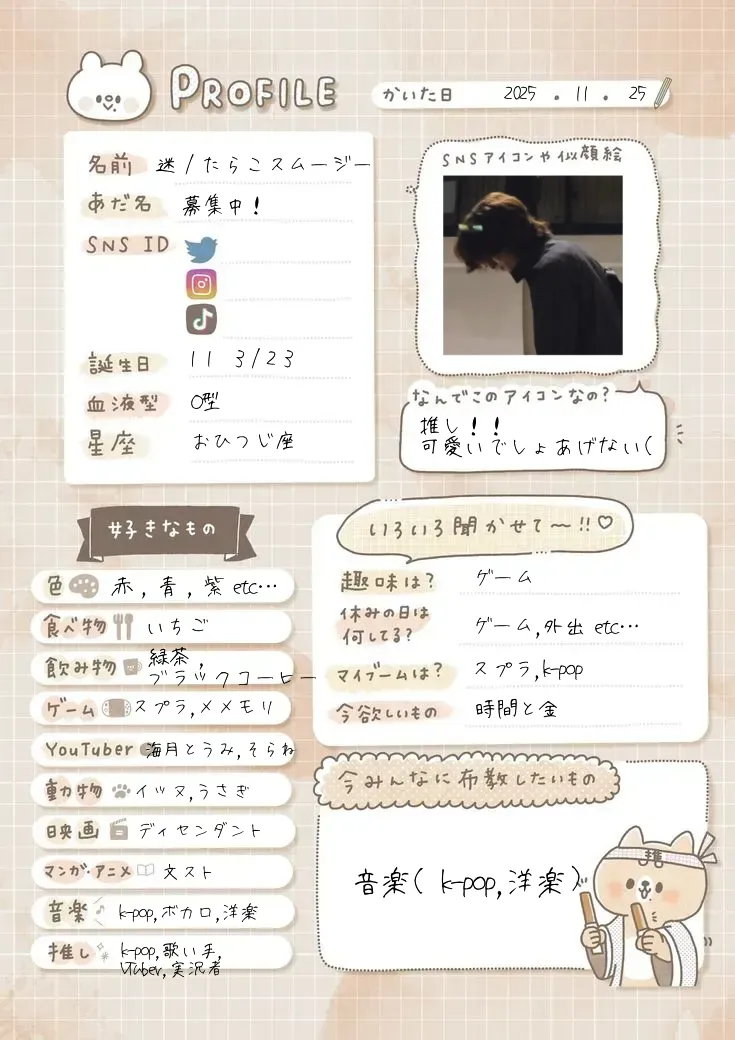 PROFILE
かいた日 2025 . 11 . 25
名前 迷/たらこスムージー
あだ名 募集中!
SNS ID
誕生日 11 3/23
血液型 O型
星座 おひつじ座
SNSアイコンや似顔絵
なんでこのアイコンなの?
推し!!
可愛いでしょあげない(
好きなもの
色 赤,青,紫 etc…
食べ物 いちご
飲み物 緑茶,
ブラックコーヒー
ゲーム スプラ,メメモリ
YouTuber 海月とうみ,そらね
動物 イッヌ,うさぎ
映画 ディセンダント
マンガ・アニメ 文スト
音楽 k-pop,ボカロ,洋楽
推し k-pop,歌い手,
VTuber,実況者
いろいろ聞かせて〜!!♡
趣味は? ゲーム
休みの日は
何してる? ゲーム,外出 etc…
マイブームは? スプラ,k-pop
今欲しいもの 時間と金
今みんなに布教したいもの
音楽( k-pop,洋楽)
推